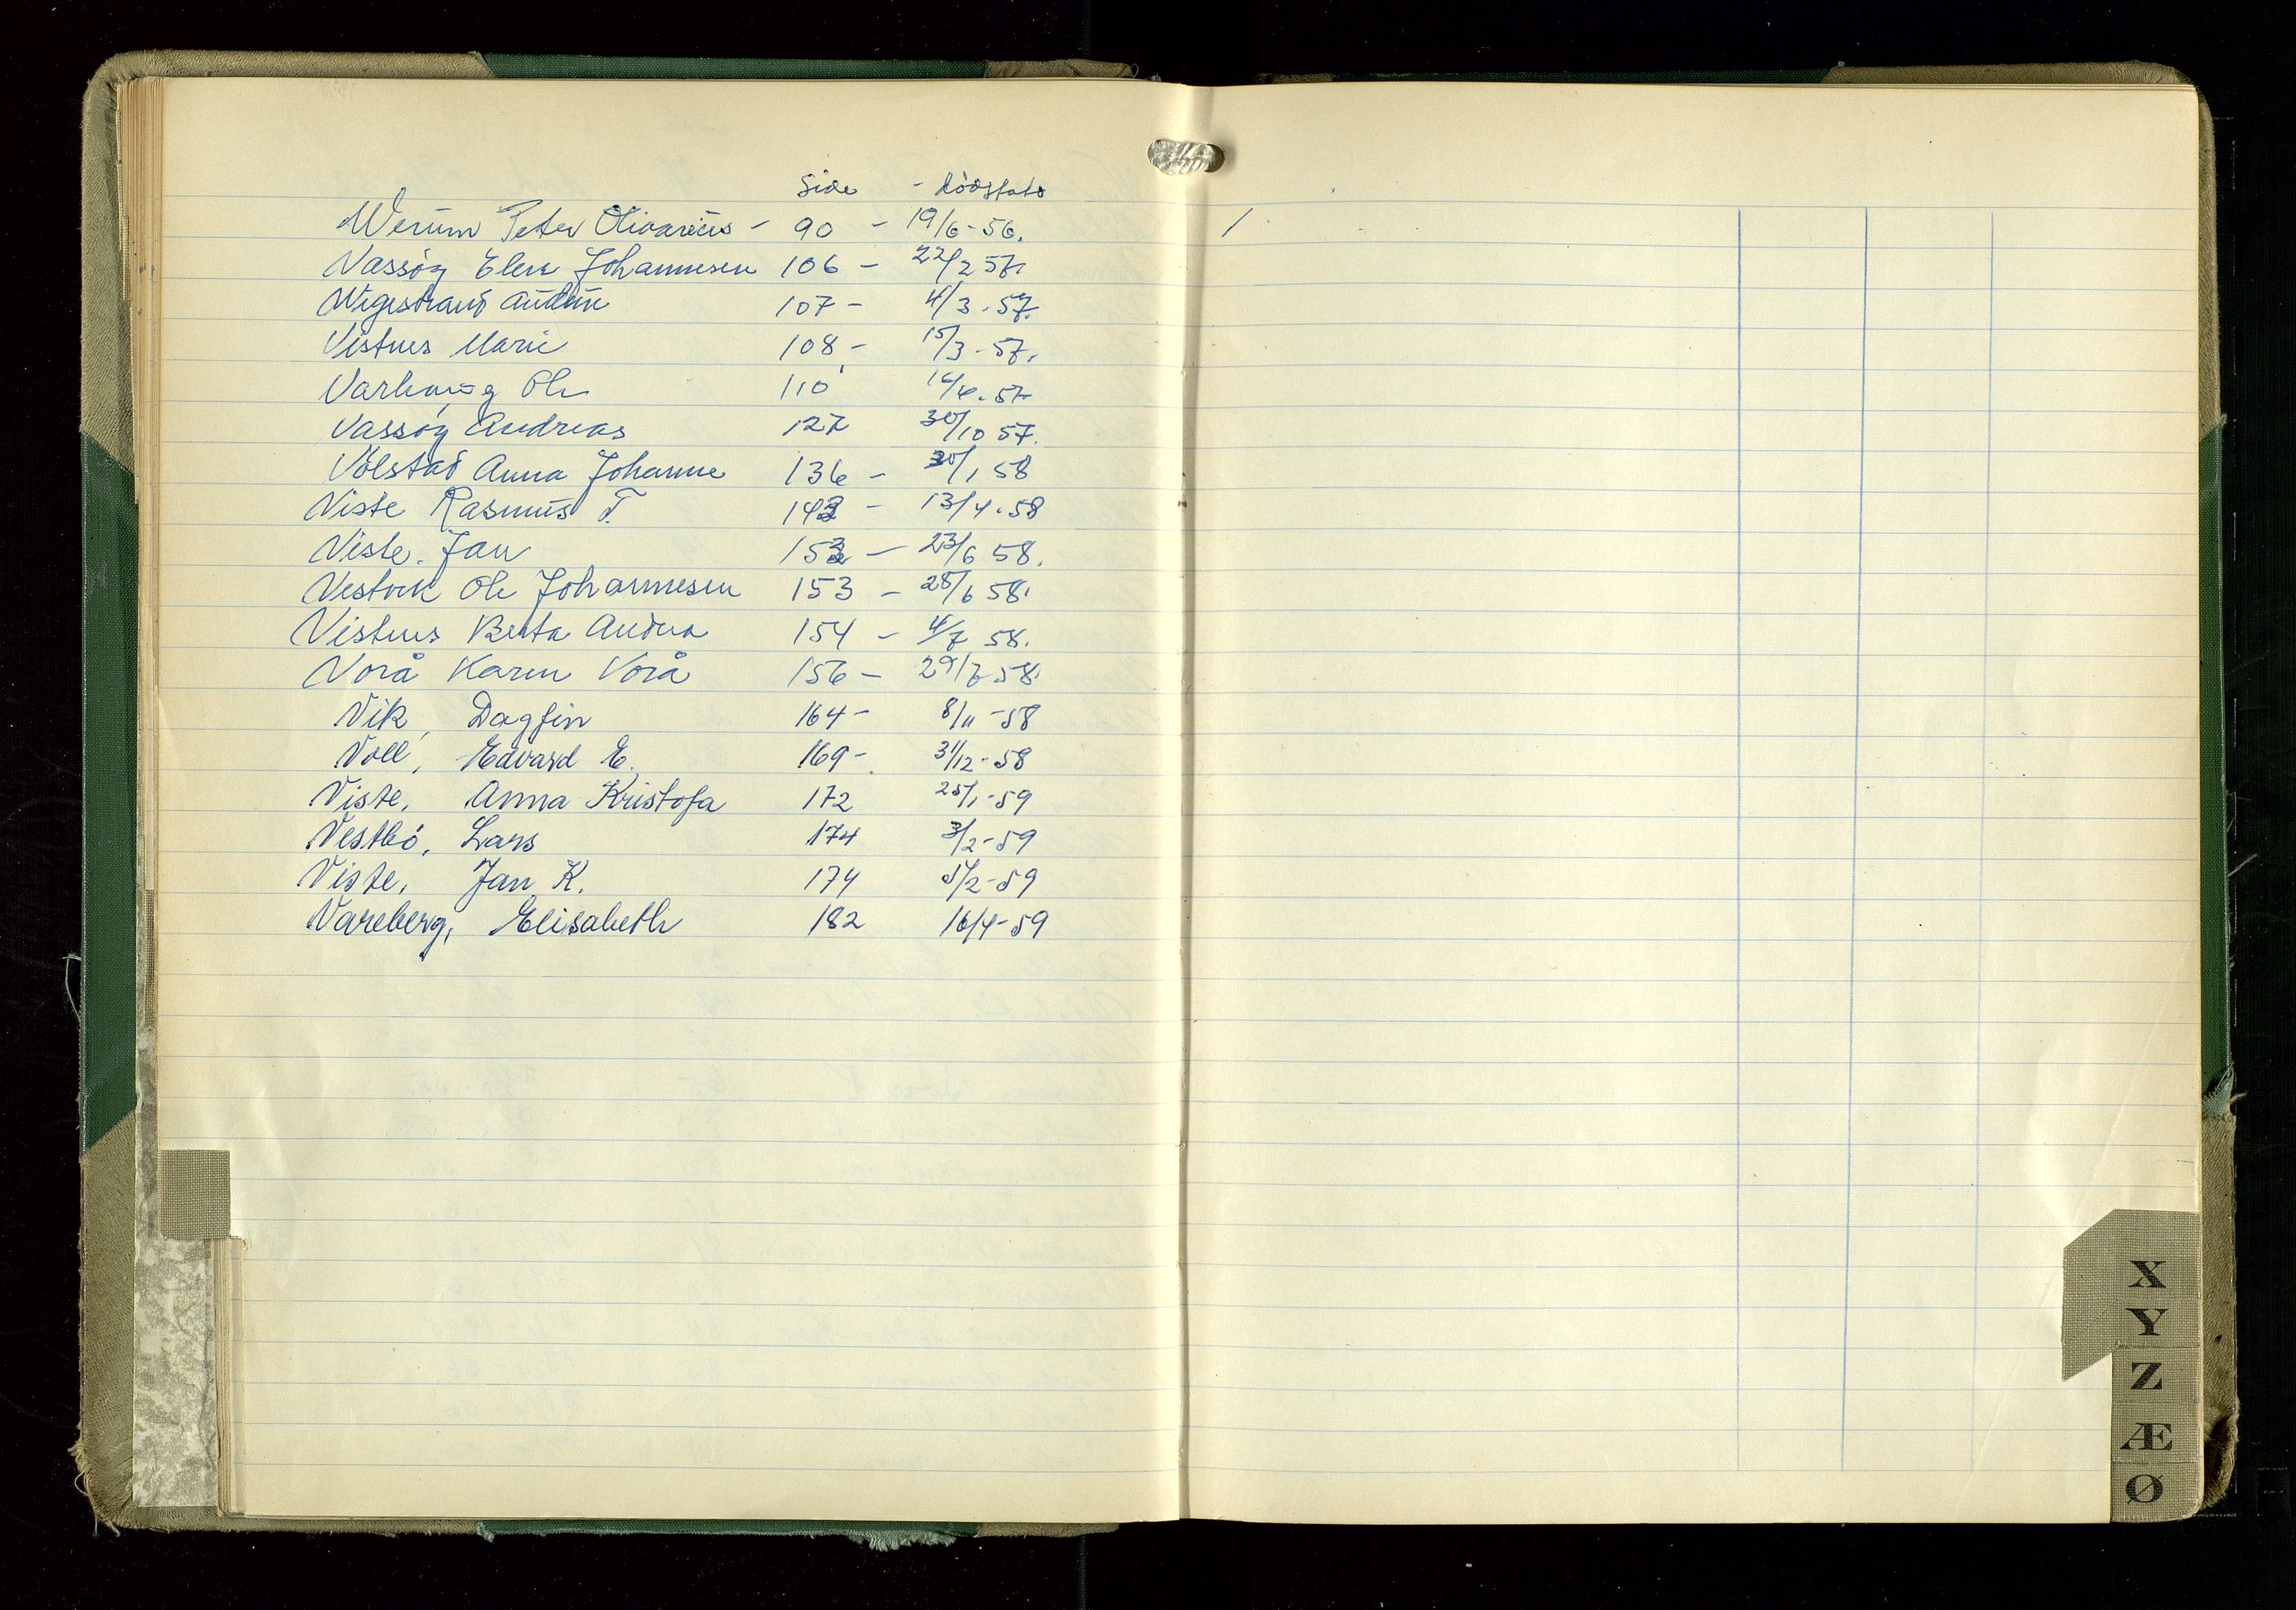 Side - dødsfald
Werum Peter Olivarius - 90 - 19/6-56.
Vassøy Elen Johannesen 106 - 22/2 57.
Wigestrand 107 - 4/3-57.
Vistnes Marie 108 - 15/3-57.
Varhaug Ole 110 57
Vassøy Andreas 127 30/10 57.
Volstad Anna Johanne 136 - 30/1 58
Viste Rasmus T. 143 - 13/4.58
Viste. Jan 152 - 23/6 58.
Vestvik Ole Johannesen 153 - 28/6 58.
Vistnes Berta Andrea 154 - 4/7 58.
Vorå Karen Vorå 156 - 29/7 58.
Vik, Dagfin 164- 8/11-58
Voll, Edvard E. 169- 31/12-58
Viste, Anna Kristofa 172 25/1-59
Vestbø, Lars 174 3/2-59
Viste, Jan K. 174 5/2-59
Vareberg, Elisabeth 182 16/4-59
X
Y
Z
Æ
Ø